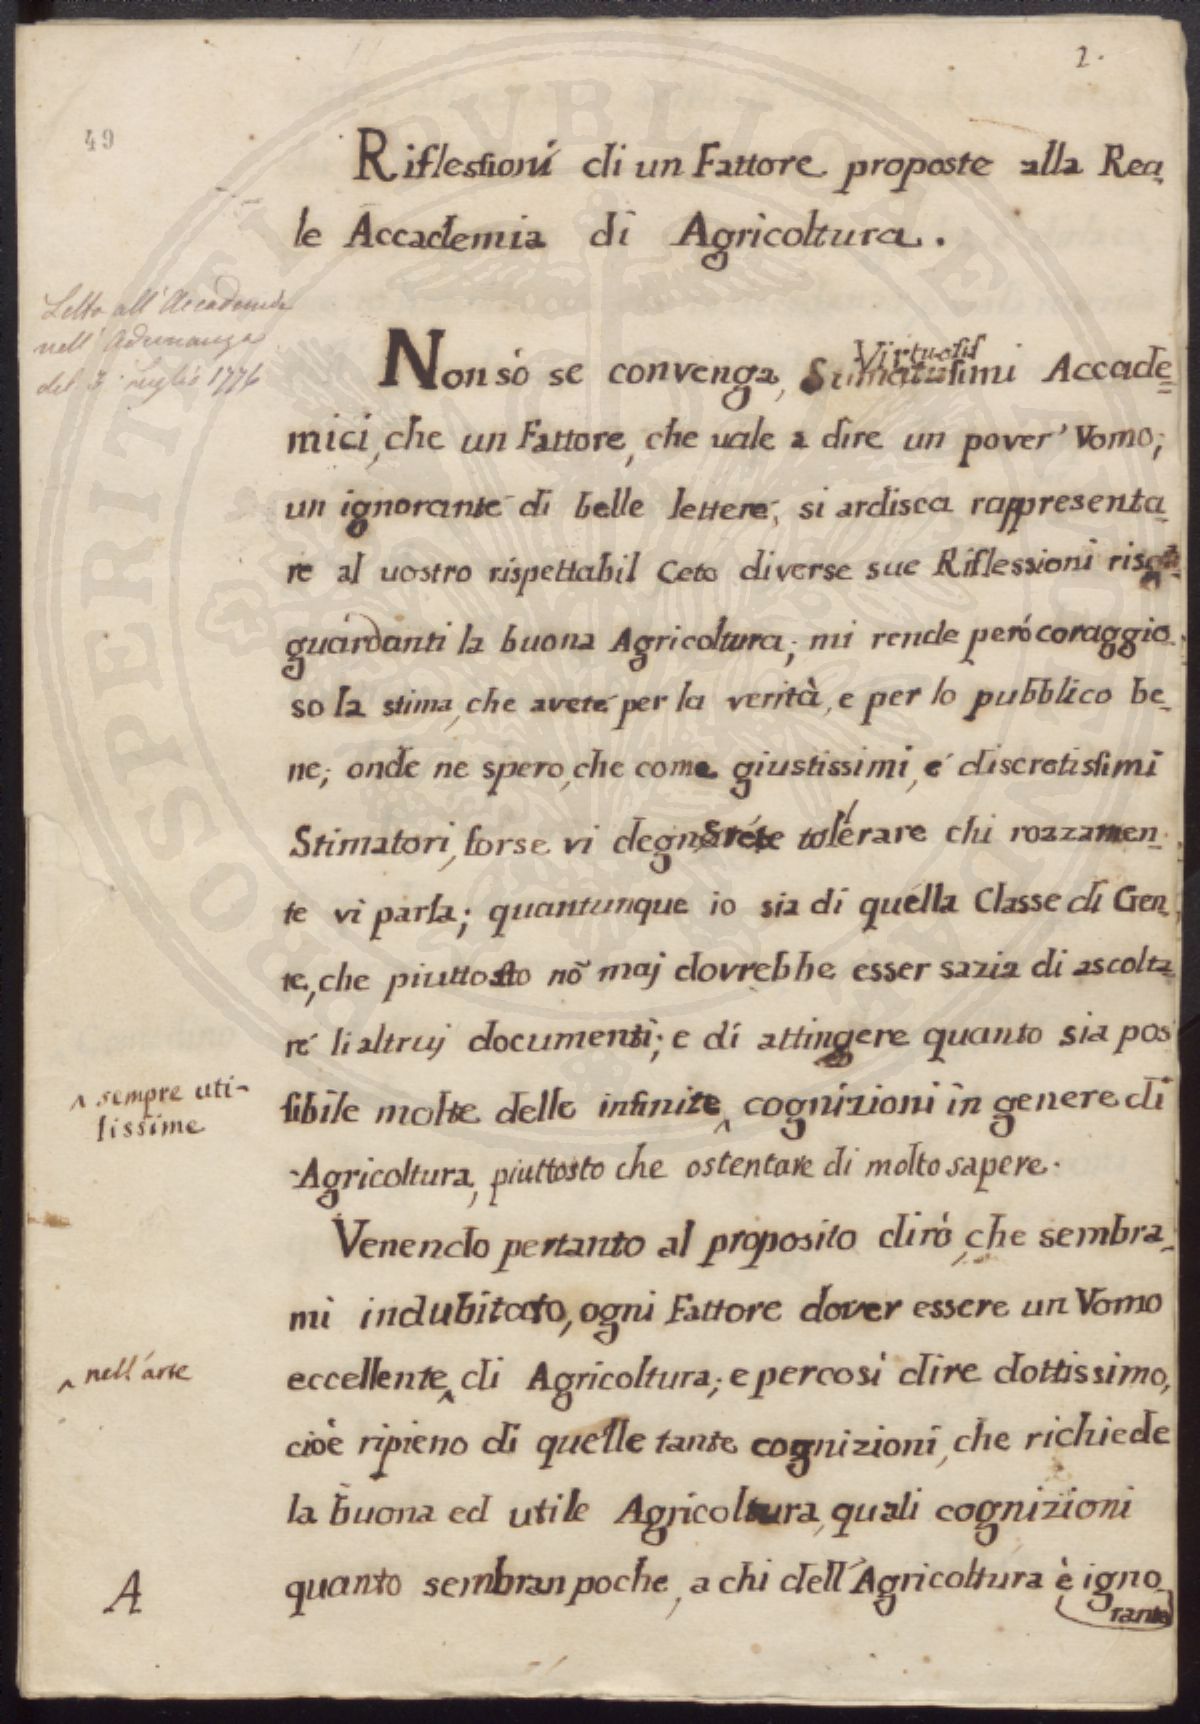 2.
49
Riflessioni di un Fattore proposte alla Rea-
le Accademia di Agricoltura.
Letto all' Accademia
nell' Adunanza
del 3 Luglio 1776
Non sò se convenga, Virtuosis Stimatissimi Accade=
mici, che un Fattore, che uale a dire un pover' Vomo;
un ignorante di belle lettere, si ardisca rappresenta-
re al uostro rispettabil Ceto diverse sue Riflessioni
guardanti la buona Agricoltura; mi rende però coraggio-
so la stima, che avete per la verità, e per lo pubblico be-
ne; onde ne spero, che come giustissimi, e discretissimi
Stimatori, forse vi degnarete tolerare chi rozzamen-
te vi parla; quantunque io sia di quella Classe di Gen-
te, che piuttosto nō maj dovrebbe esser sazia di ascolta-
re li altruj documenti; e di attingere quanto sia pos
sibile molte delle infinite ^ cognizioni in genere di
^ sempre uti-
lissime
Agricoltura, piuttosto che ostentare di molto sapere.
Venendo pertanto al proposito dirò, che sembra-
mi indubitato, ogni Fattore dover essere un Vomo
eccellente ^ di Agricoltura; e percosì dire dottissimo,
^ nell'arte
cioè ripieno di quelle tante cognizioni, che richiede
la buona ed utile Agricoltura, quali cognizioni
quanto sembran poche, a chi dell'Agricoltura è igno
rante
A
PROSPERITATI PUBLICAE AUGENDAE